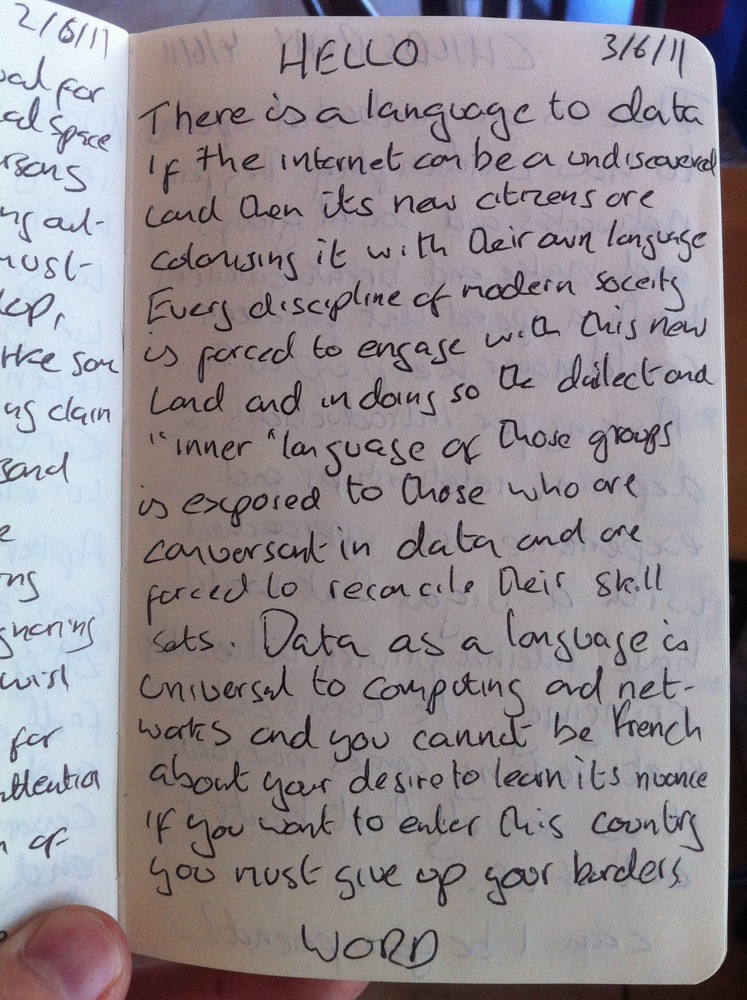 2/6/11
for
space
out-
must-
claim
for
attention
of
HELLO 3/6/11
There is a language to data
If the internet can be a undiscovered
land then its new citizens are
colonising it with their own language
Every discipline of modern soceity
is forced to engage with this new
Land and in doing so the dailect and
"inner "language of those groups
is exposed to those who are
conversant in data and are
forced to reconcile their skill
sets. Data as a language is
universal to computing and net-
works and you cannot be french
about your desire to learn its nuance
If you want to enter this country
you must give up your borders
WORD